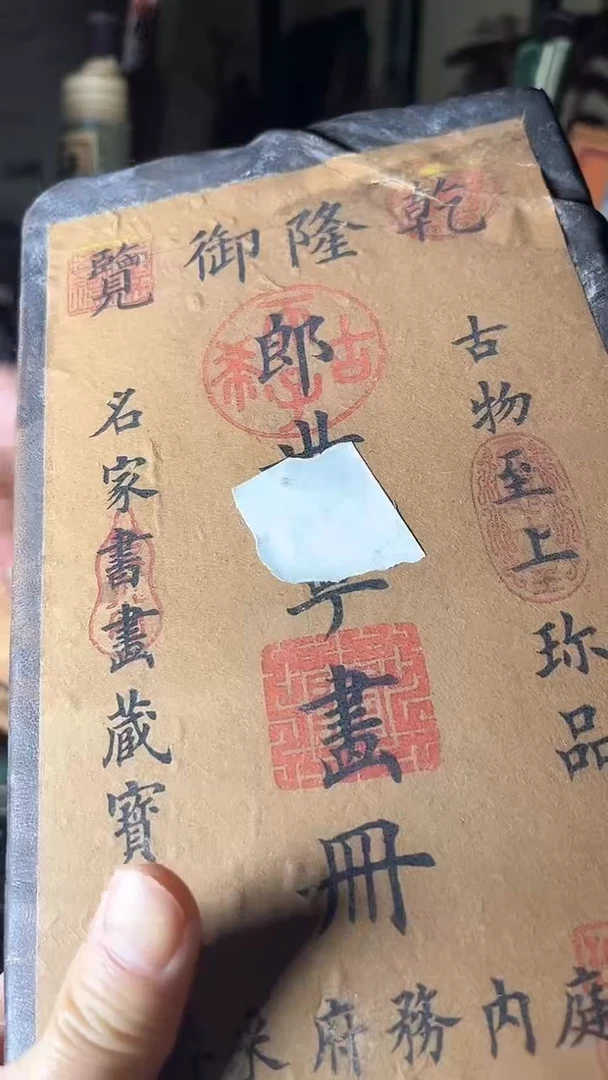 乾隆御覽
古物至上珎品
郎畫冊
名家書畫藏寶
庭内務府